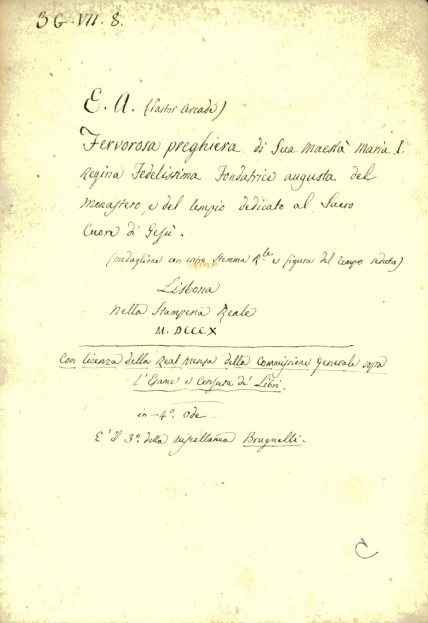 36.VII.8.
E. A. (Pastor Arcade)
Fervorosa preghiera di Sua Maestà Maria I.
Regina Fedelissima Fondatrice augusta del
monastero, e del tempio dedicato al Sacro
Cuore di Gesù.
(medaglione con sopra Stemma R.le e figura del tempo seduta)
Lisbona
nella Stamperia Reale
M. DCCCX
Con licenza della Real Mensa della Commissione Generale sopra
l'Esame e Censura de' Libri.
in-4.o Ode
E' il 3.o della
Brugnelli.
C